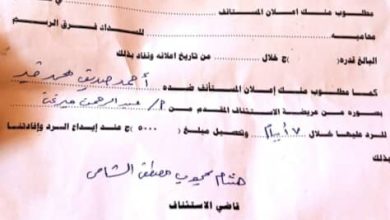 مطلوب منك اعلان المستأنف في
محاميه للسداد فرق الرسم
البالغ قدره: ج خلال من تاريخ اعلانه ونفاد بذلك
كما مطلوب منك إعلان المستأنف ضده أحمد صديق محمد
بصوره من عريضة الاستئناف المقدم من أ/ عبد الرحمن
للرد عليها خلال ٧ أيام وتحصيل مبلغ ( ٥٠٠٠ ج عند إيداع الرد وإفادتنا
بذلك
هشام محجوب مصطفى الشامي
قاضي الاستئناف